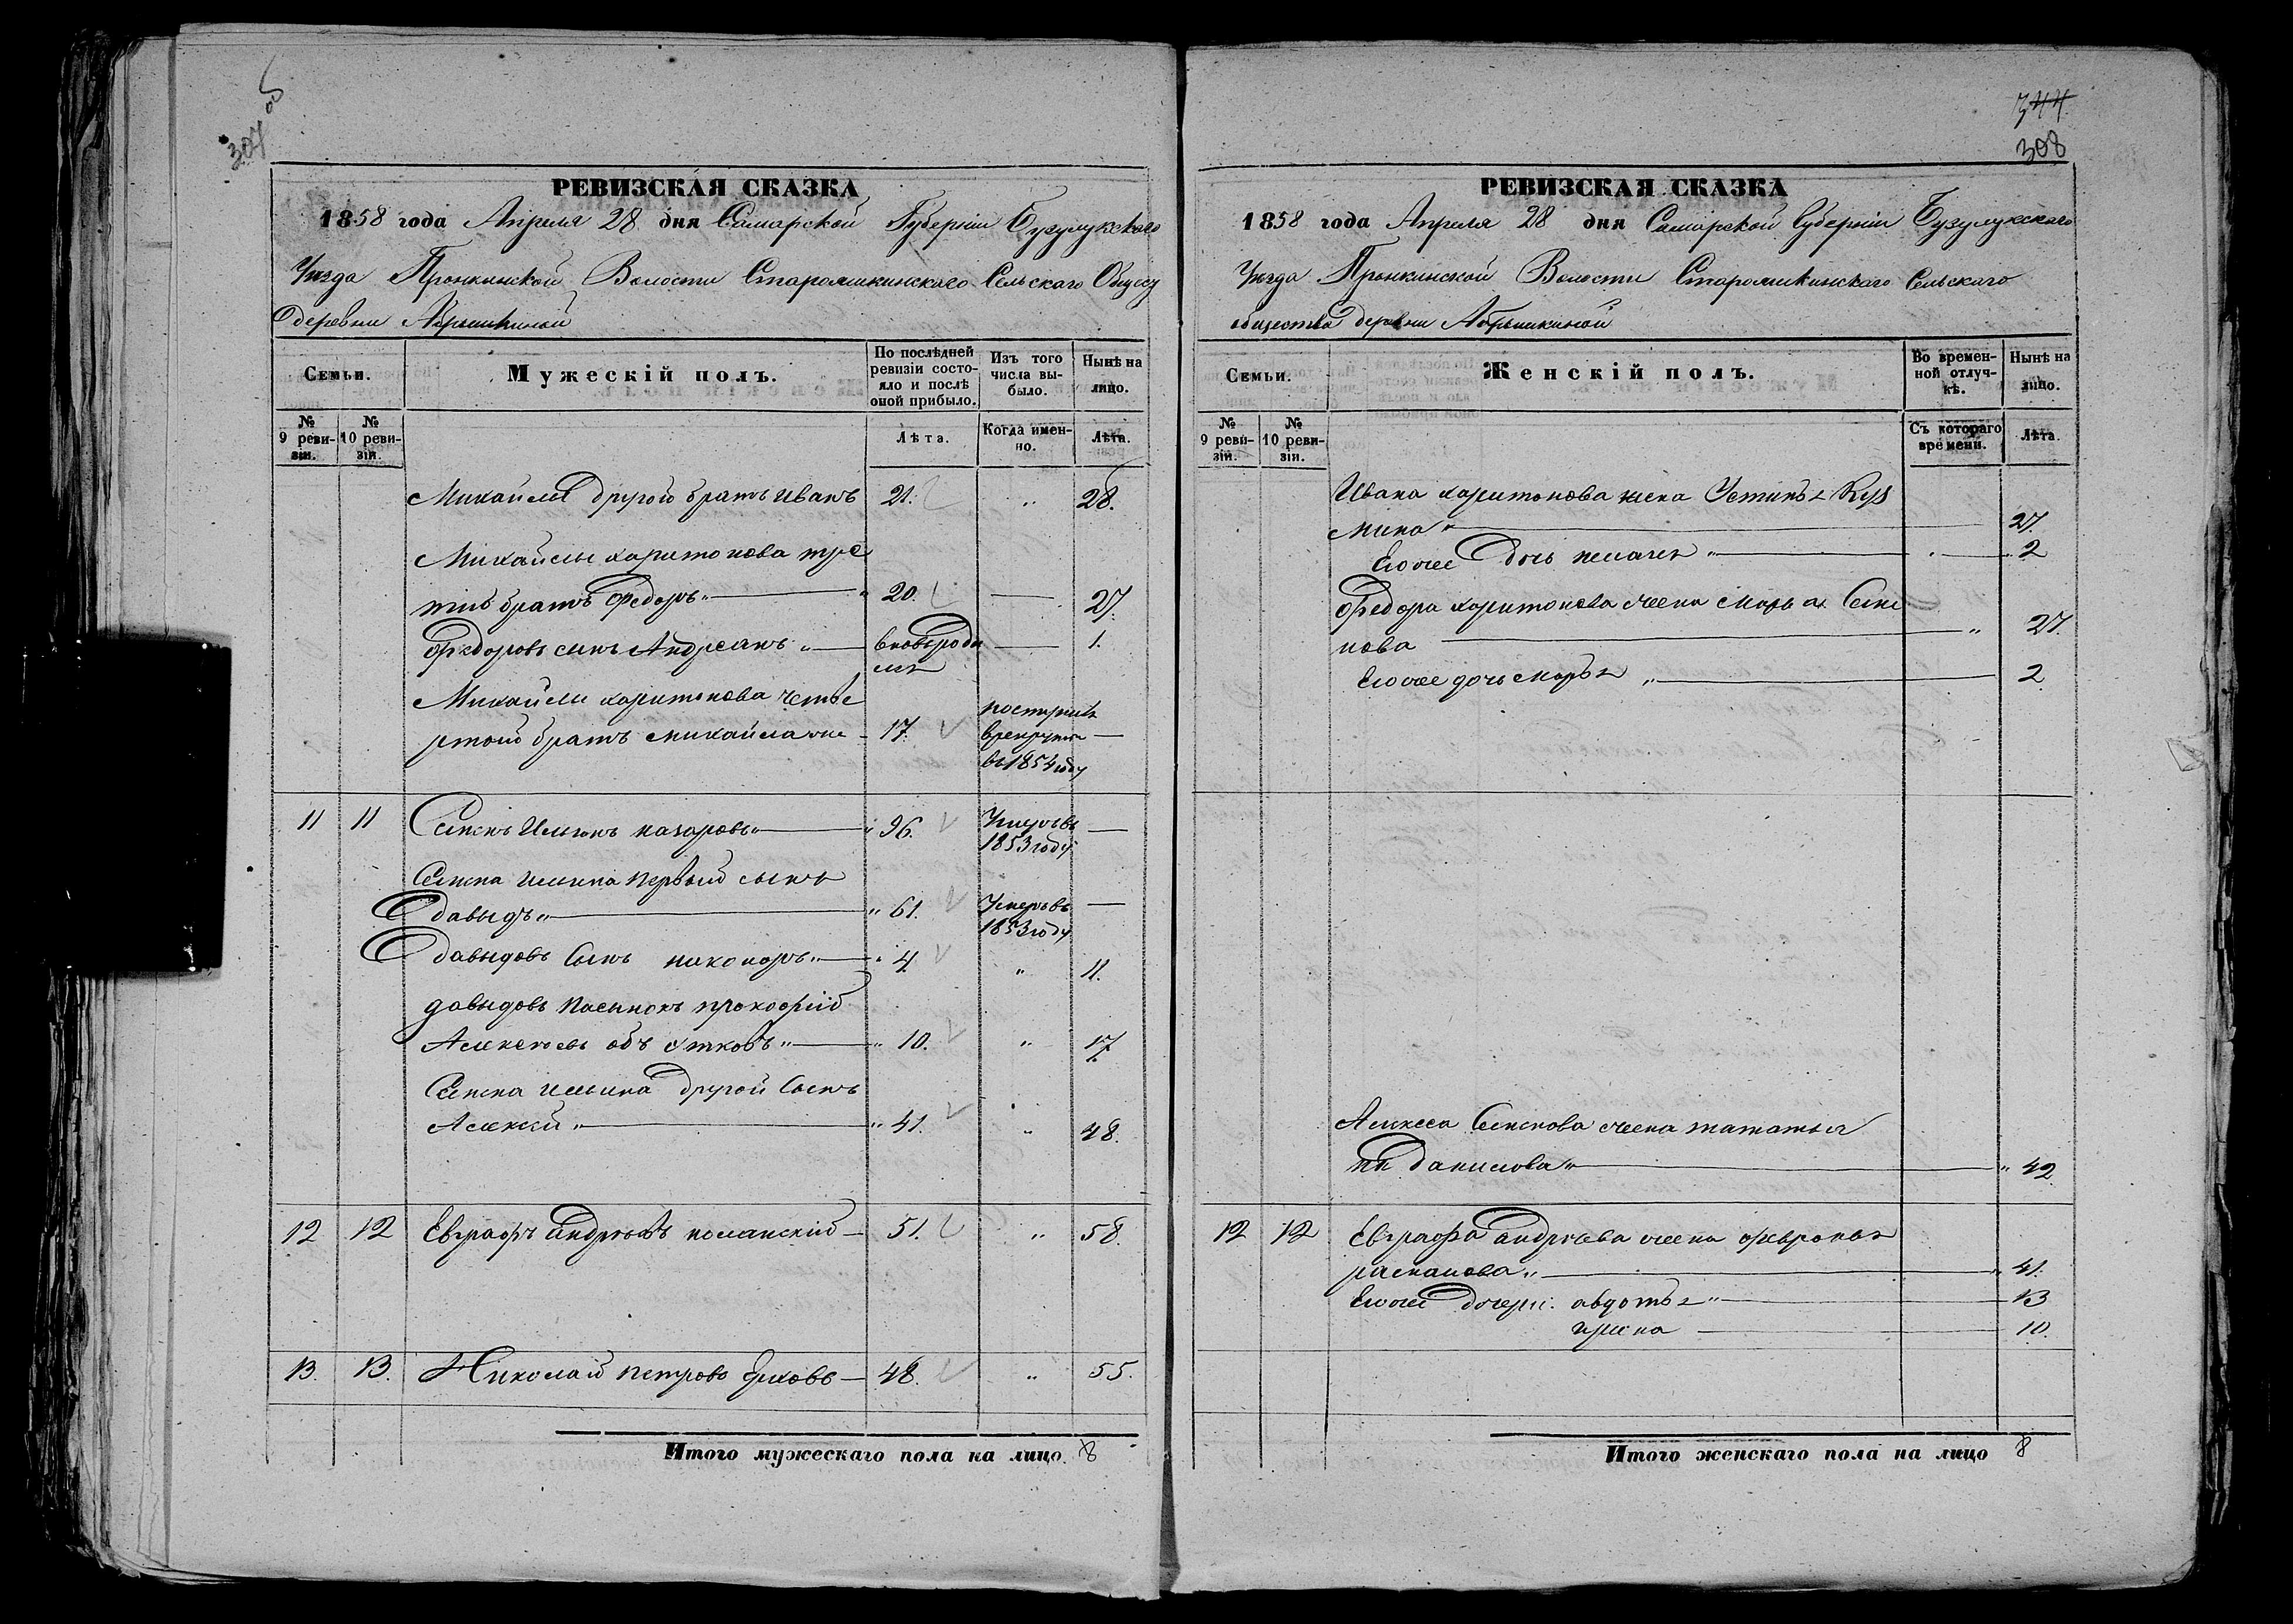 307 об
РЕВИЗСКАЯ СКАЗКА
1858 года Апреля 28 дня Самарской Губернiи Бузулукскаго
Уѣзда Пронкинской Волости Сельскаго
деревни
Семьи.
Мужескiй полъ.
По послѣдней ревизiи состо-
яло и послѣ оной прибыло.
Изъ того числа вы-
было.
Нынѣ на лицо.
№ 9 реви-
зiи.
№ 10 реви-
зiи.
Лѣта.
Когда имен-
но.
Лѣта.
Михайлы другой братъ Иванъ 21. " 28.
Михайлы харитонова тре
тiй братъ Федоръ " — 20. — 27.
Федоровъ сынъ Андреянъ " — вновь роди — 1.
лся
Михайлы харитонова четве
ртой братъ михайла же — 17. — —
в рекруты
въ 1854 году
11 11 Семенъ Ильинъ назаровъ " — " 96. Умеръ въ —
1853 году
Семена ильина первый сынъ
давыдъ " — " 61. Умеръ въ —
1853 году
давыдовъ сынъ никоноръ " — " 4. " 11.
давыдовъ пасынокъ прокофiй
Алексеевъ " — " 10. " 17
Семена ильина другой сынъ
Алексей " — " 41. " 48.
12 12 Евграфъ андреевъ — 51. " 58.
13. 13. Николай петровъ — 48. " 55.
Итого мужескаго пола на лицо. 8
344
308
РЕВИЗСКАЯ СКАЗКА
1858 года Апреля 28 дня Самарской Губернiи Бузулукскаго
Уѣзда Пронкинской Волости Сельскаго
общества деревни
Семьи.
Женскiй полъ.
Во времен-
ной отлуч-
кѣ.
Нынѣ на лицо.
№ 9 реви-
зiи.
№ 10 реви-
зiи.
Съ котораго времени.
Лѣта.
Ивана харитонова жена Устинья Куз
мина " — 27.
Его же дочь пелагея " — 2
Федора харитонова жена марья Семе
нова — " 27.
Его же дочь марья " — 2
Алексея Семенова жена татьяна
данилова " — " 42
12 12 Евграфа андреева жена февронья
— " 41.
Его же дочери: авдотья " — 13
ирина — 10.
Итого женскаго пола на лицо 8